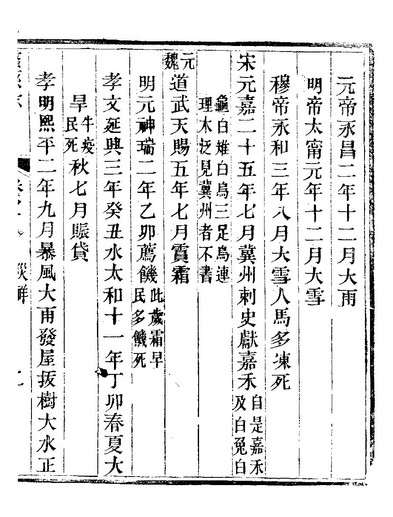 元帝永昌二年十二月大雨
明帝太甯元年十二月大雪
穆帝永和三年八月大雪人馬多凍死
宋元嘉二十五年七月冀州刺史獻嘉禾自是嘉禾及白兔白
龜白雉白烏三足烏連理木泛見冀州者不書
元魏道武天賜五年七月霣霜
明元神瑞二年乙卯薦饑此歲霜旱民多饑死
孝文延興三年癸丑水太和十一年丁卯春夏大
旱牛疫民死秋七月賑貸
孝明熙平二年九月暴風大雨發屋拔樹大水正